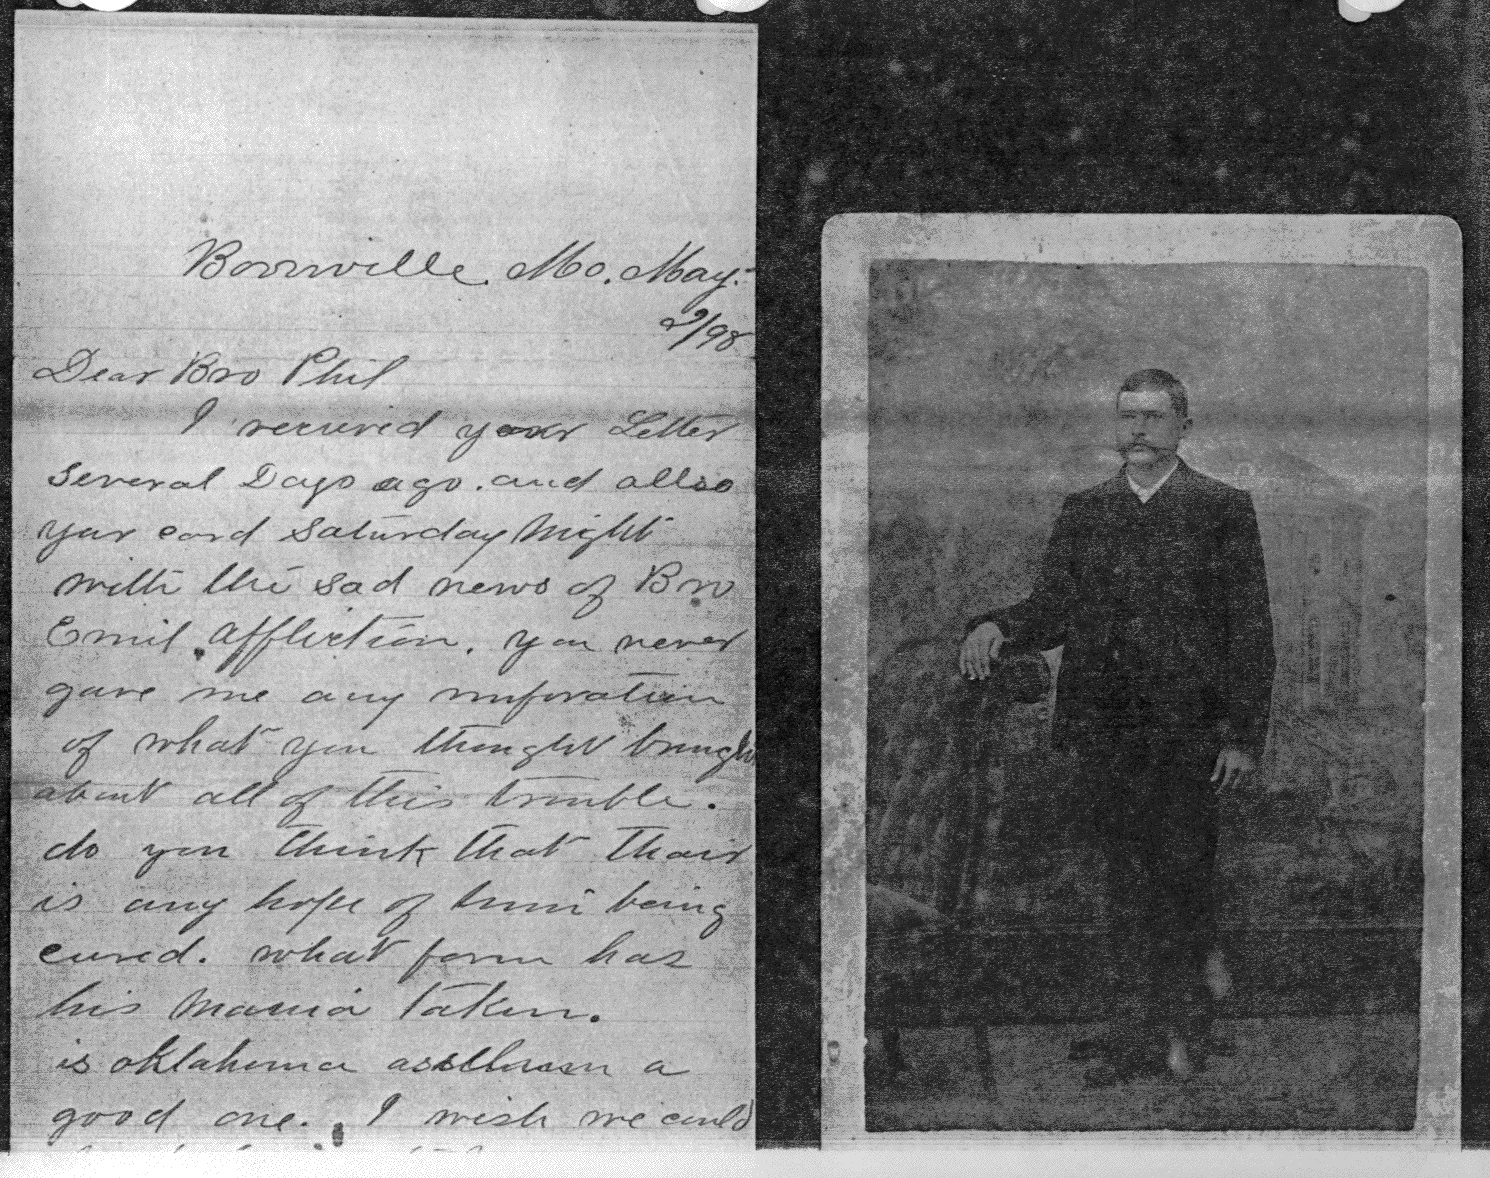 Boonville. Mo. May.
2/98
Dear Bro Phil
I recieved your Letter
several Days ago. and allso
your card saturday Night
with the sad news of Bro
Emil affliction. you never
gave me any
of what you thought brought
about all of this trouble.
do you think that thair
is any hope of him being
cured. what form has
his Mania taken.
is oklahoma a
good one. I wish we could